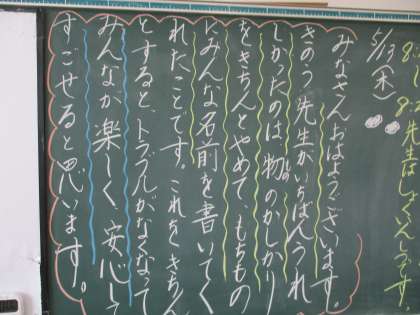 5/19(木)
みなさん、おはようございます。
きのう、先生がいちばんうれ
しかったのは、物のかしかり
もの
をきちんとやめて、もちもの
にみんな名前を書いてく
れたことです。これをきちん
とすると、トラブルがなくなって
みんなが楽しく、安心して
すごせると思います。